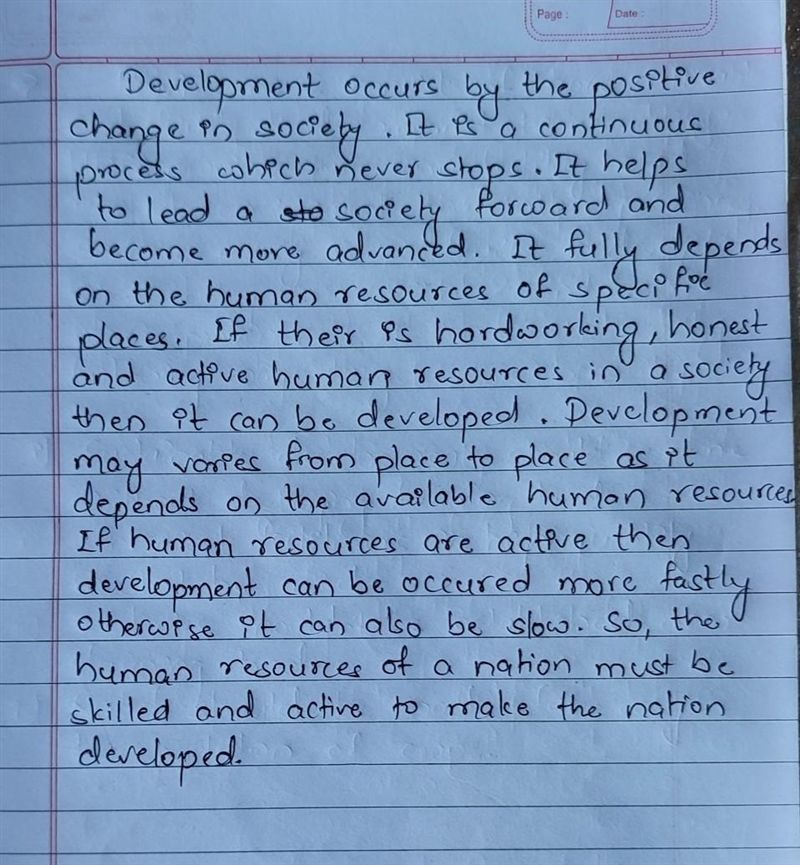 Page :
Date :
Development occurs by the positive
change in society. It is a continuous
process which never stops. It helps
to lead a sto society forward and
become more advanced. It fully depends
on the human resources of specific
places. If their is hardworking, honest
and active human resources in a society
then it can be developed. Development
may varies from place to place as it
depends on the available human resources
If human resources are active then
development can be occured more fastly
otherwise it can also be slow. So, the
human resources of a nation must be
skilled and active to make the nation
developed.